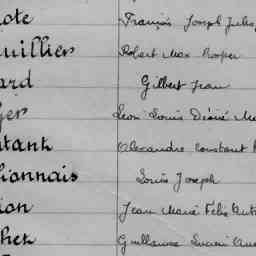 ote François Joseph Jules
uillier Robert Max Prosper
ard Gilbert Jean
ger Léon Louis Désiré M
tant Alexandre Constant
ionnais Louis Joseph
ion Jean Marie Félix
het Guillaume Lucien